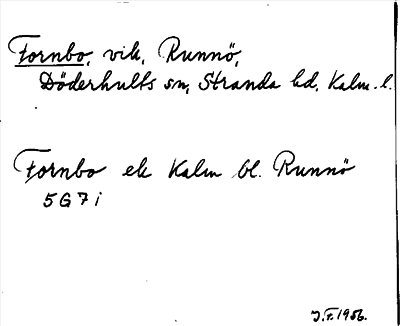 Fornbo, vik, Runnö,
Döderhults sn, Stranda hd, Kalm. l.
Fornbo ek Kalm bl. Runnö
5G7i
J.F. 1956.